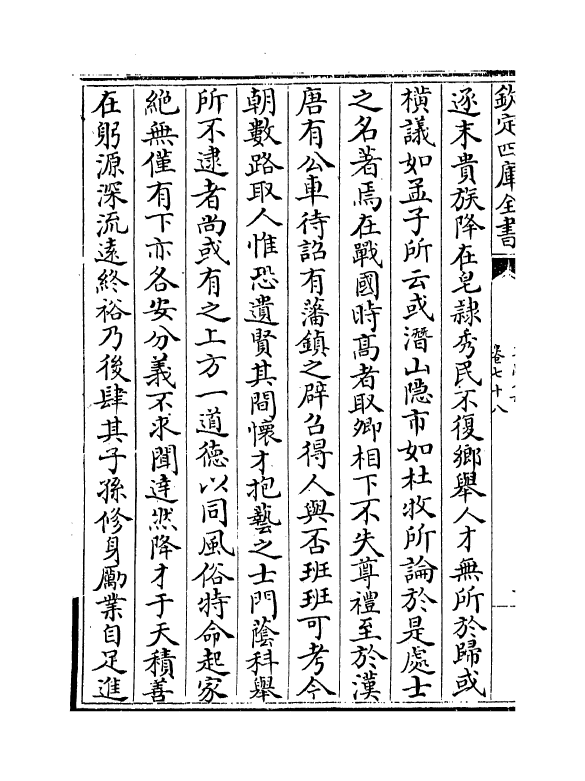 欽定四庫全書
卷七十八
逐末貴族降在皂隷秀民不復鄉舉人才無所於歸或
橫議如孟子所云或潛山隠市如杜牧所論於是處士
之名著焉在戰國時髙者取卿相下不失尊禮至於漢
唐有公車待詔有藩鎮之辟召得人與否班班可考今
朝數路取人惟恐遺賢其間懷才抱藝之士門蔭科舉
所不逮者尚或有之上方一道德以同風俗特命起家
絶無僅有下亦各安分義不求聞達然降才于天積善
在躬源深流遠終裕乃後肆其子孫修身勵業自足進